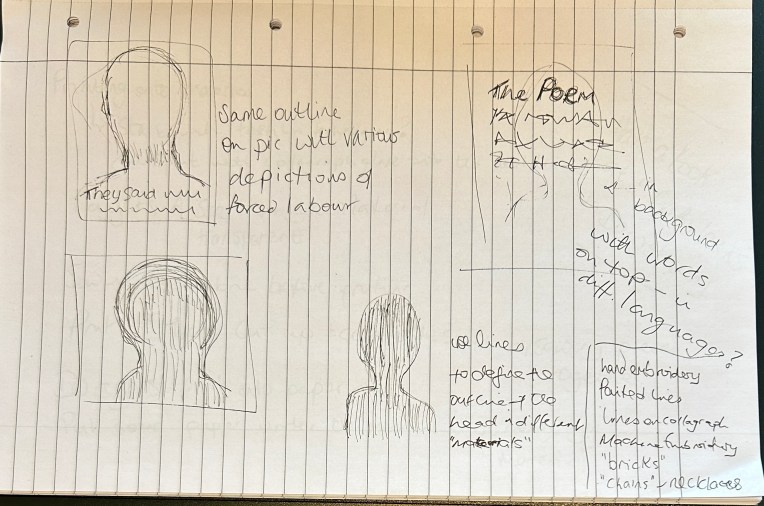 Same outline
on pic with various
depictions of
forced labour
They said
The POEM
in
background
with words
on top - in
diff. languages?
use lines
to define the
outline of the
head in different
"materials"
hand embroidery
Painted lines
lines on collagraph
Machine Embroidery
"bricks"
"chains" - necklaces